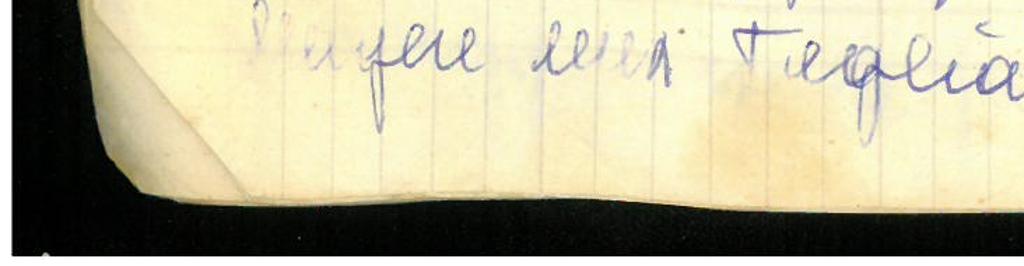 Ungere una Teglia